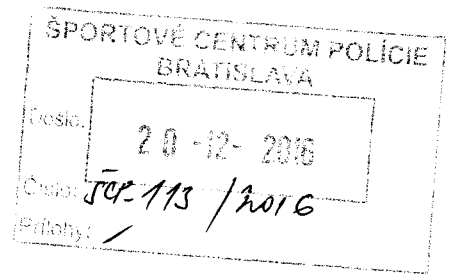 ŠPORTOVÉ CENTRUM POLÍCIE
BRATISLAVA
Došlo:
20 -12- 2016
Číslo: ŠCP-113 / 2016
Prílohy: /